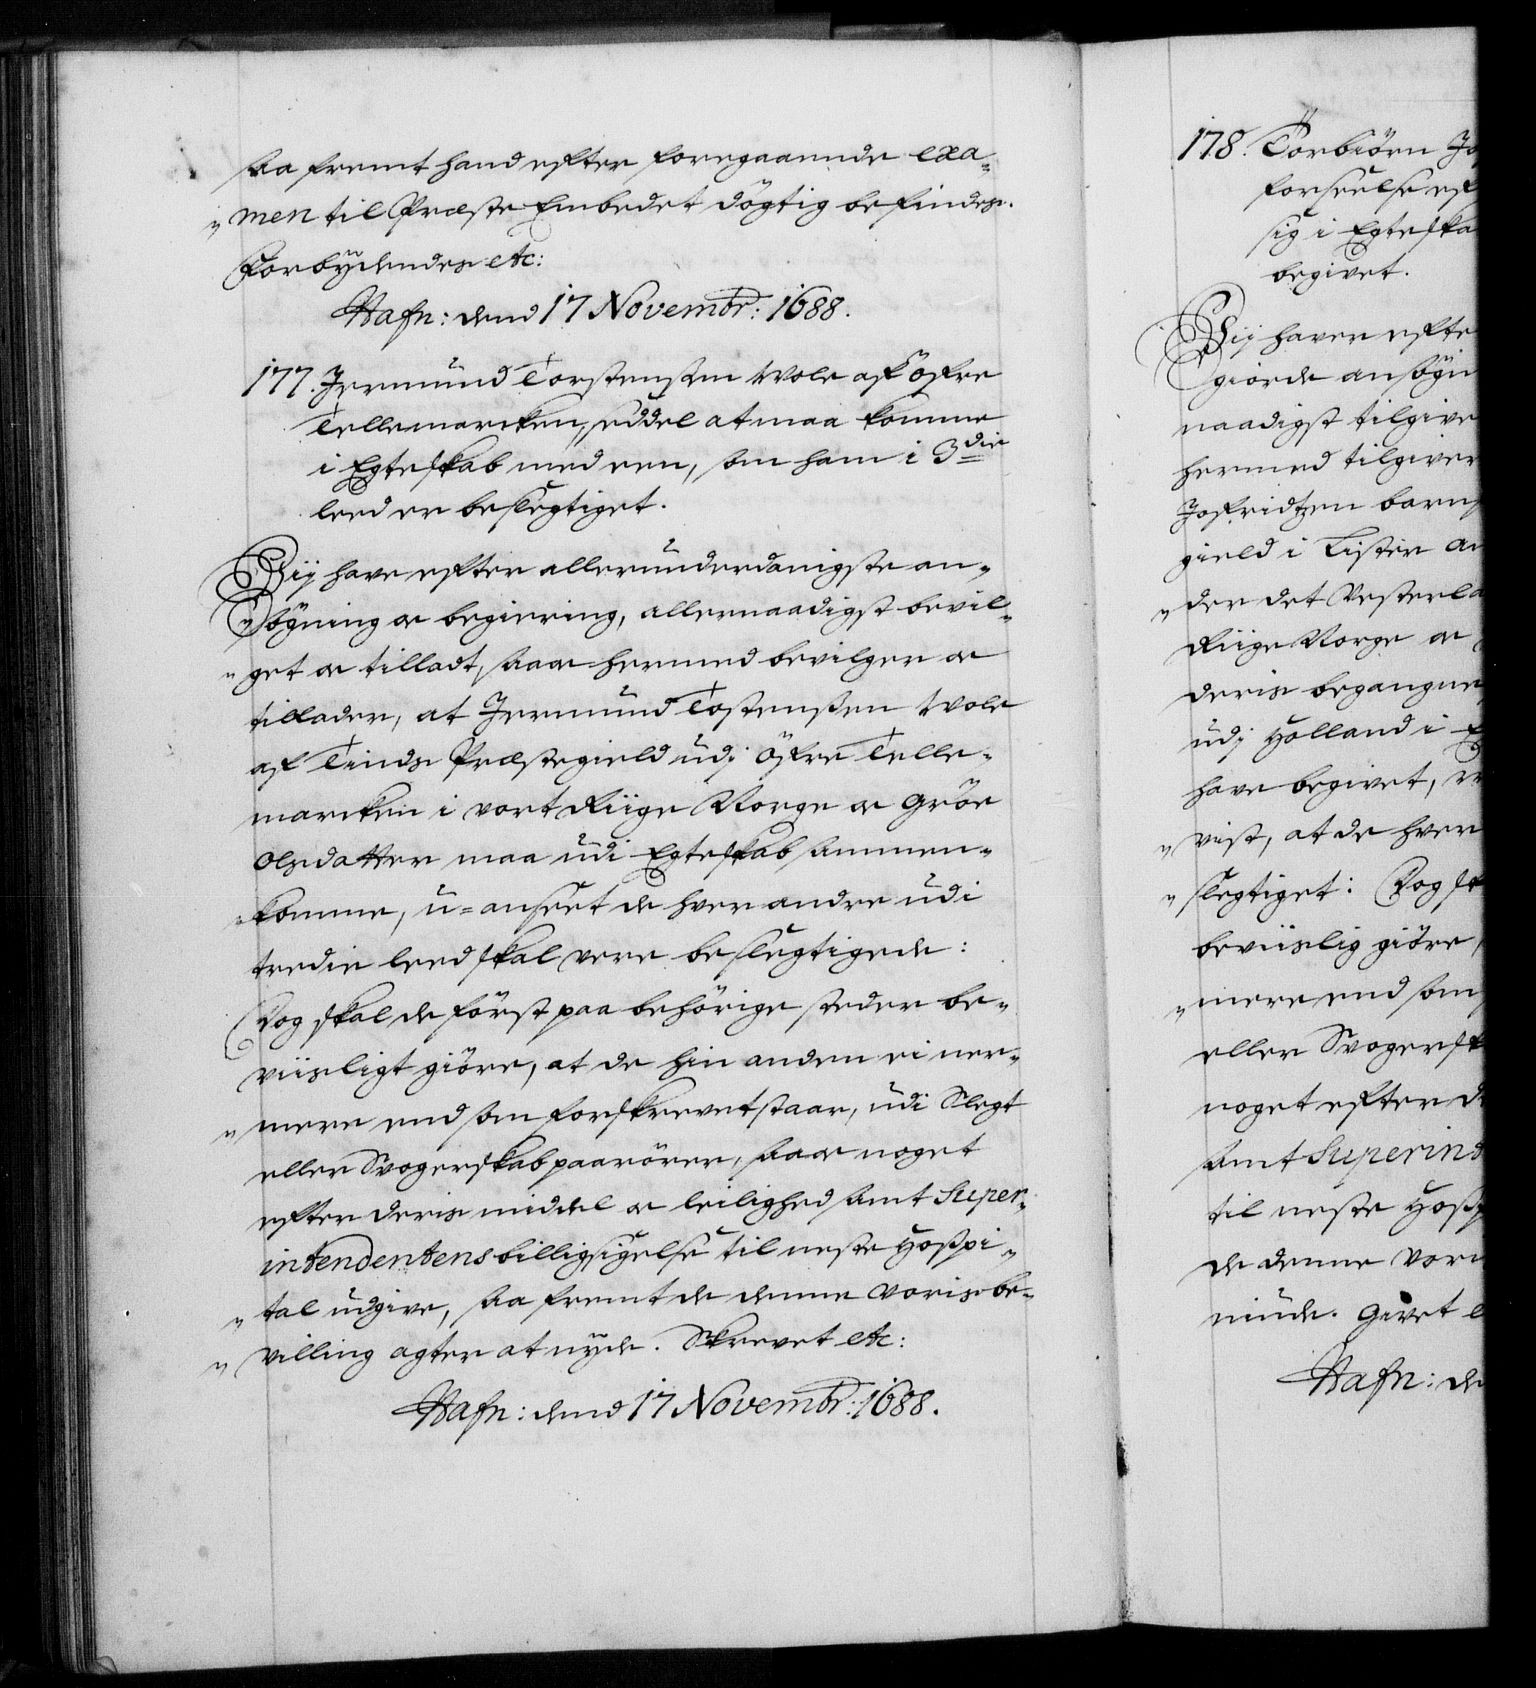 saa fremt hand efter foregaaende exa-
"men til Præste Embedet dögtig befindes.
Forbÿdendes etc:
Hafn: dend 17 Novembr: 1688.
177. Jermund Torstensen Wole aff öfre
Tellemarcken, seddel at maa komme
i Egteskab med een, som ham i 3die
leed er beslegtiget.
Vij have efter allerunderdanigste an-
"søgning oc begiering, allernaadigst bevil-
"get oc tilladt, saa oc hermed bevilger oc
tillader, at Jermund Tostenßen Wole
af Tinds Præstegield udj öfre Telle-
marcken i vort Riige Norge oc Gröe
Olsdatter maa udi Egteskab sammen-
"komme, u=anseet de hver andre udi
tredie leed skal vere beslegtigede:
Dog skal de först paa behörige steder be-
viisligt giöre, at de hin anden ei ner-
"mere end som forskrevet staar, udi Slegt
eller Svogerskab paarörer, saa oc noget
efter deris middel oc leilighed samt Super-
intendentens billigsigelse til neste Hospi-
"tal udgive, saa fremt de denne voris be-
"villing agter at nyde. Skrevet etc:
Hafn: dend 17 Novembr: 1688.
178. Torbiörn Jo
forseelse ef
sig i Egteska
begivet.
Vij haver efte
giorde ansögn
naadigst tilgive
hermed tilgiver
Josfridtzen barnf
gield i Lister am
"der det Vesterla
Riige Norge oc
deris begangne
udj Holland i E
have begivet, 
"vist, at de hver
"slegtiget: Dog sk
beviislig giöre,
"mere end som
eller Svogersk
noget efter de
samt Superind
til neste Hosp
de denne vori
niude. Givet e
Hafn: de